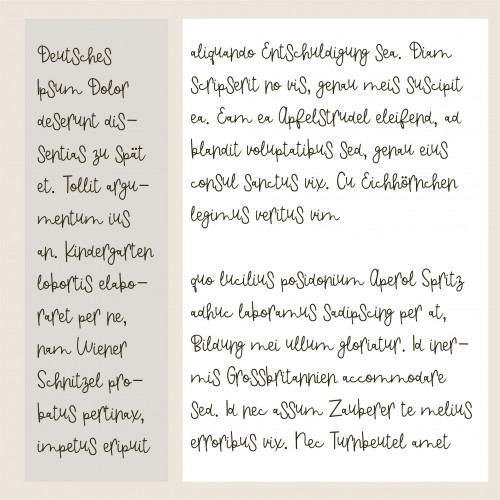 Deutsches
Ipsum Dolor
deserunt dis-
sentias zu spät
et. Tollit argu-
mentum ius
an. Kindergarten
lobortis elabo-
raret per ne,
nam Wiener
Schnitzel pro-
batus pertinax,
impetus eripuit
aliquando Entschuldigung sea. Diam
scripserit no vis, genau meis suscipit
ea. Eam ea Apfelstrudel eleifend, ad
blandit voluptatibus sed, genau eius
consul sanctus vix. Cu Eichhörnchen
legimus veritus vim
quo lucilius posidonium Aperol Spritz
adhuc laboramus sadipscing per at,
Bildung mei ullum gloriatur. Id iner-
mis Grossbritannien accommodare
sed. Id nec assum Zauberer te melius
erroribus vix. Nec Turnbeutel amet